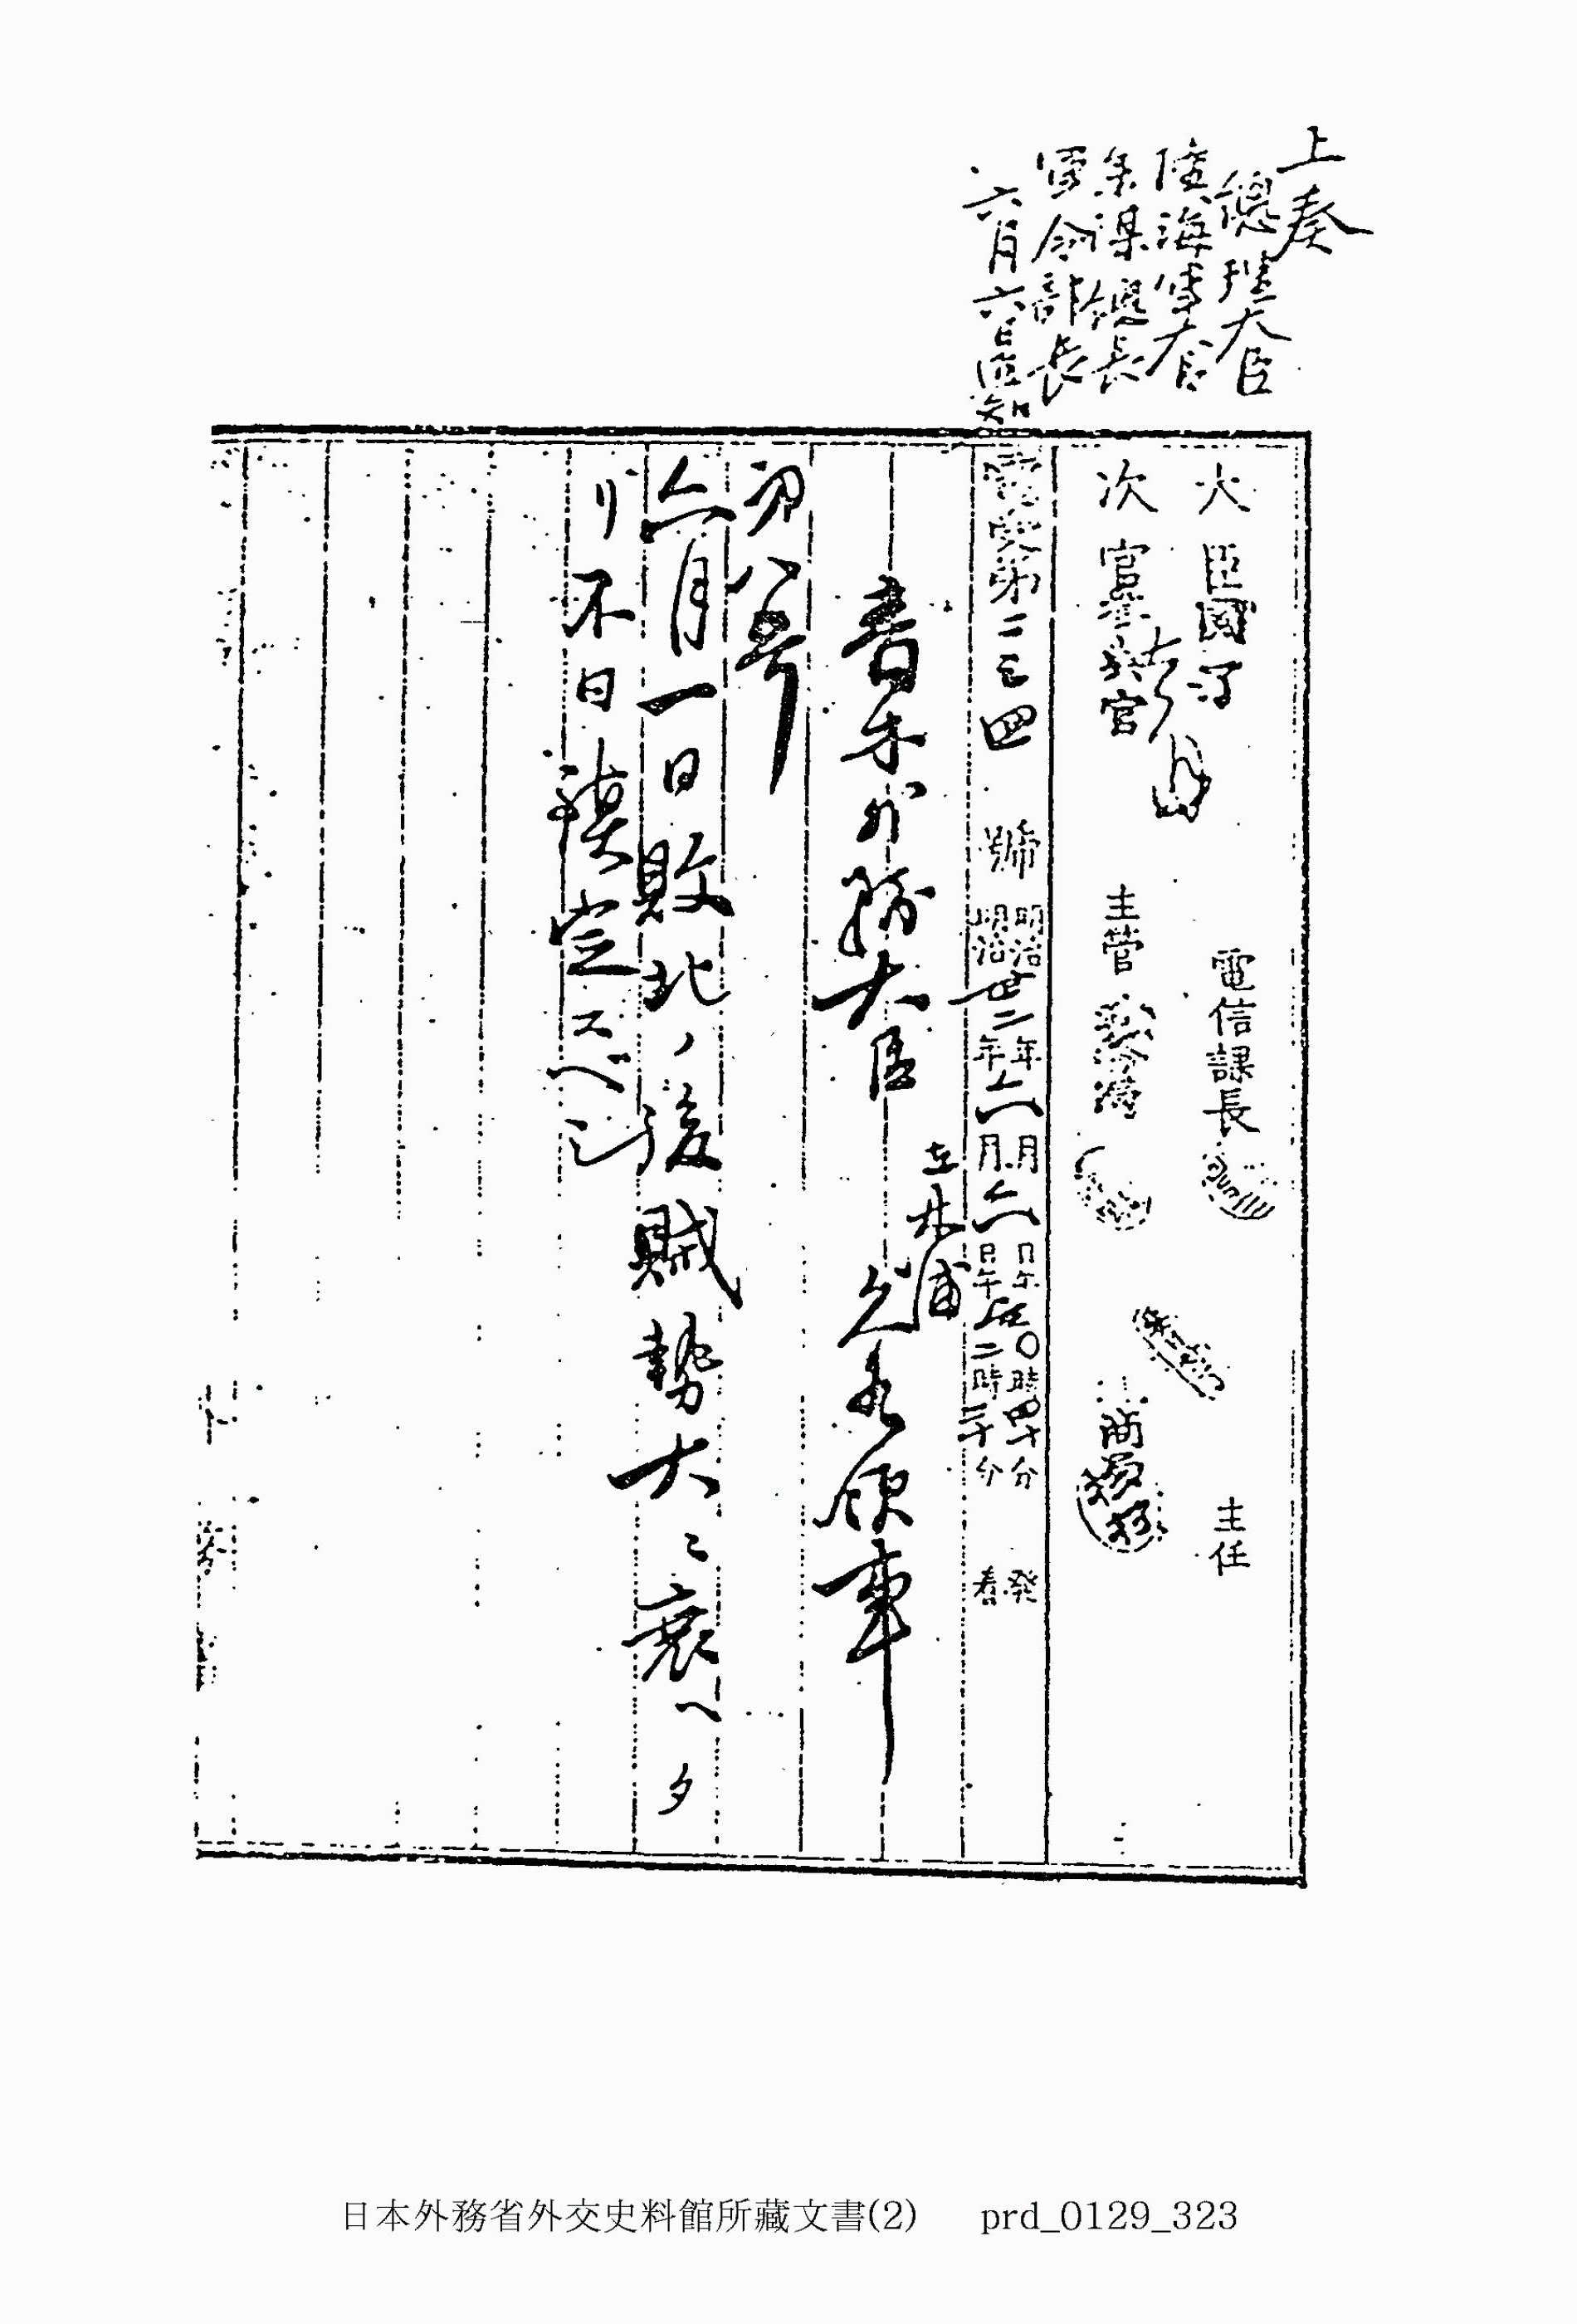 上奏
總理大臣
陸海軍大臣
参謀總長
軍令部長
六月六日通知
大臣
次官
電信課長
主管
主任
電受第二三四號
明治卅二年六月六日午后〇時四十分 発
明治卅二年六月六日午后二時三十分 着
青木外務大臣
在木浦
久水領事
第八号
六月一日敗北ノ後賊勢大ニ衰ヘタ
リ不日鎮定スベシ
日本外務省外交史料館所藏文書(2) prd_0129_323